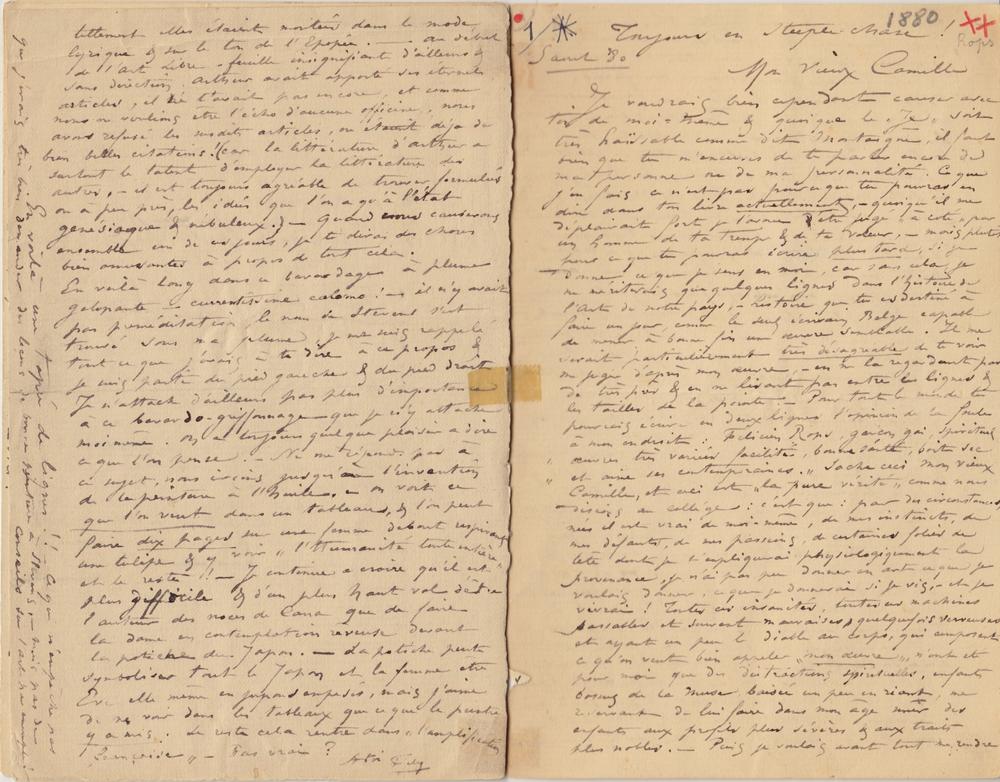 tellement elles étaient montées dans le mode
lyrique & sur le ton de l'Epopée. — Au début
de l'Art Libre – feuille insignifiante d'ailleurs &
sans direction, Arthur avait apporté ses éternels
articles, il ne l'avait pas encore, et comme
nous ne voulions être l'écho d'aucune officine, nous
avons refusé les susdits articles, où étaient déjà de
bien belles citations! (car la littérature d'Arthur a
surtout le talent d'employer la littérature des
autres, – il est toujours agréable de trouver formulées
ou à peu près, les idées que l'on a qu'à l'état
genésiaque & nébuleux.) – Quand nous causerons
ensemble un de ces jours, je te dirai des choses
bien amusantes à propos de tout cela.
En voilà long dans ce bavardages à plume
galopante – currentissime calamo! – il n'y avait
pas préméditation, le nom de Stevens s'est
trouvé sous ma plume, je me suis rappelé
tout ce que j'avais à te dire à ce propos &
je suis parti du pied gauche & du pied droit
Je n'attache d'ailleurs pas plus d'importance
à ce bavardo-griffonnage que je n'y attache
moi même. On a toujours quelque plaisir à dire
ce que l'on pense. – Ne me réponds pas à
ce sujet, nous irions jusqu'à l'invention
de la peinture à l'huile. – on voit ce
que l'on veut dans un tableau, & l'on peut
faire dix pages sur une femme debout respirant
une tulipe & y voir „l'Humanité toute entière"
et le reste!! – Je continue à croire qu'il est
plus difficile & d'un plus haut vol d'être
l'auteur des noces de Cana que de faire
la dame en contemplation rêveuse devant
la potiche du Japon. – La potiche peut
symboliser tout le Japon et la femme être
Eve elle même en jupons empesés, mais j'aime
à ne voir dans les tableaux que ce que le peintre
y a mis. Le reste cela rentre dans „l'amplification
Françoise" – Pas vrai?
En voilà une tapée de lignes!! Ce qui n'empêche pas
que j'irais très bien demander des leçons de
1/
1880
Rops
Toujours en Steeple chase!
Samedi 80
Mon Vieux Camille
Je voudrais bien cependant causer avec
toi de moi-même & quoique le „Je" soit
très haïssable comme dit Montaigne, il faut
bien que tu m'excuses de te parler encore de
ma personne ou de ma personnalité. Ce que
j'en fais ce n'est pas pour ce que tu pourras en
dire dans ton livre actuellement, – quoiqu'il me
déplairait fort je l'avoue d'être jugé à côté, par
un homme de ta trempe & de ta valeur, – mais plutôt
pour ce que tu pourras écrire plus tard, si je
donne ce que je sens en moi, car sans cela je
ne mériterais que quelques lignes dans l'histoire de
l'Art de notre pays, – histoire que tu es destiné à
faire un jour, comme le seul écrivain Belge capable
de mener à bonne fin une œuvre semblable. Il me
serait particulièrement très désagréable de te voir
me juger d'après mon œuvre, – en ne la regardant pas
de très près & en ne lisant pas entre les lignes &
les tailles de la pointe. – Pour tout le monde tu
pourrais écrire en deux lignes l'opinion de la foule
à mon endroit: Félicien Rops, garçon gai, spirituel
„ œuvres très variées facilité, bonne santé, boit sec
„ et aime ses contemporaines." Sache ceci mon vieux
Camille, et ceci est „la pure vérité" comme nous
disions au collège: c'est que: par des circonstances,
nées il est vrai de moi-même, de mes instincts, de
mes défauts, de mes passions, de certaines folies de
tête dont je t'expliquerai physiologiquement la
provenance, je n'ai pas pu donner en art ce que je
voulais donner, ce que je donnerai si je vis, – et je
vivrai! Toutes ces insanités, toutes ces machines
passables et souvent mauvaises, quelquefois verveuses
et ayant un peu le diable au corps, qui composent
ce qu'on veut bien appeler „mon œuvre", n'ont été
pour moi que des distractions spirituelles, enfants
bossus de la Muse, baisée un peu en riant, me
réservant de lui faire dans mon âge mûr des
enfants aux profils plus sévères & aux traits
plus nobles. – Puis je voulais avant tout me rendre